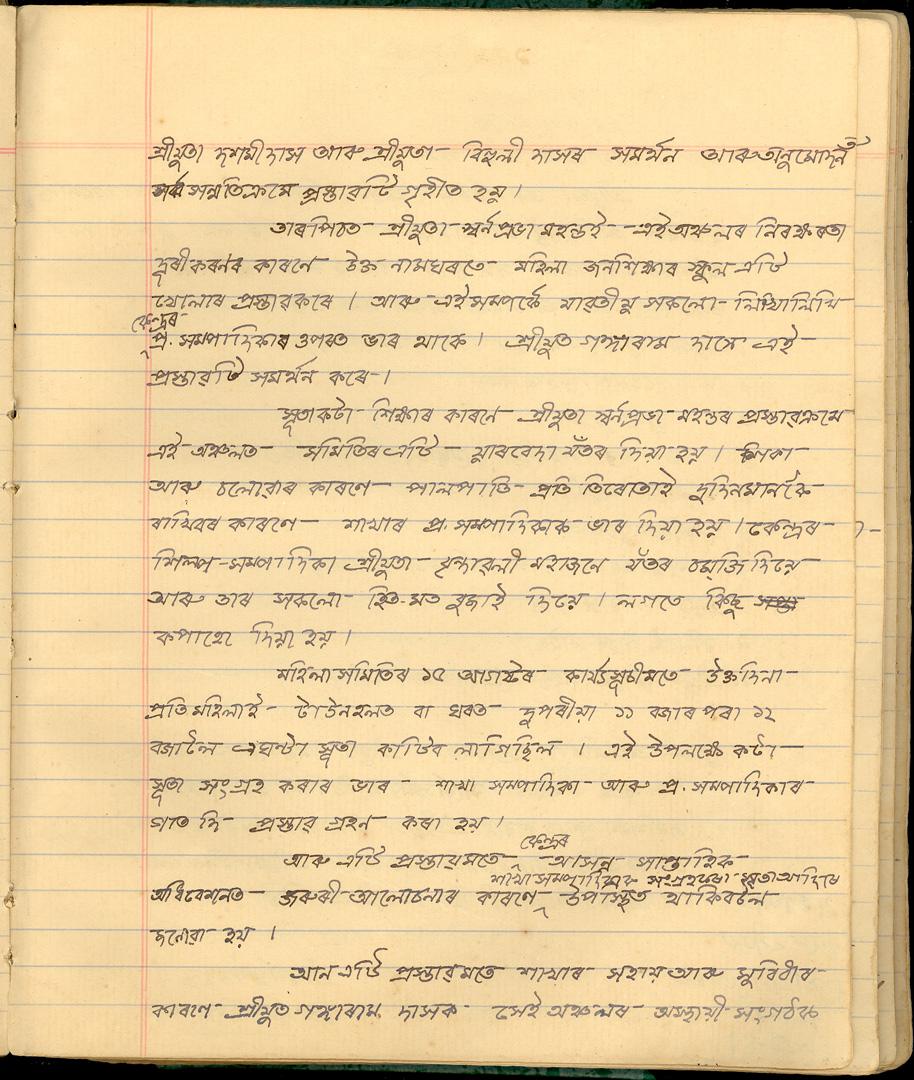 শ্ৰীযুতা দশমী দাস আৰু শ্ৰীযুতা বিহুলী দাসৰ সমৰ্থন আৰু অনুমোদনত
সৰ্ব্ব সন্মতিক্ৰমে প্ৰস্তাৱটি গৃহীত হয়।
তাৰপিচত শ্ৰীযুতা স্বৰ্নপ্ৰভা মহন্তই এই অঞ্চলৰ নিৰক্ষৰতা
দূৰীকৰণৰ কাৰণে উক্ত নামঘৰতে মহিলা জনশিক্ষাৰ স্কুল এটি
খোলাৰ প্ৰস্তাৱ কৰে। আৰু এই সম্পৰ্কে যাৱতীয় সকলো লিখালিখি
কেন্দ্ৰৰ
প্ৰ. সম্পাদিকাৰ ওপৰত ভাৰ থাকে। শ্ৰীযুত গঙ্গাৰাম দাসে এই
প্ৰস্তাৱটি সমৰ্থন কৰে।
সূতাকটা শিক্ষাৰ কাৰণে শ্ৰীযুতা স্বৰ্নপ্ৰভা মহন্তৰ প্ৰস্তাৱক্ৰমে
এই অঞ্চলত সমিতিৰ এটি য়াৰবেদা যঁতৰ দিয়া হয়। শিকা
আৰু চলোৱাৰ কাৰণে পালপাতি প্ৰতি তিৰোতাই দুদিনমানকৈ
ৰাখিবৰ কাৰণে শাখাৰ প্ৰ. সম্পাদিকাক ভাৰ দিয়া হয়। কেন্দ্ৰৰ
শিল্প-সম্পাদিকা শ্ৰীযুতা বৃন্দাৱলী মহাজনে যঁতৰ চমজি দিয়ে
আৰু তাৰ সকলো হিত-মত বুজাই দিয়ে। লগতে কিছু
কপাহো দিয়া হয়।
মহিলা সমিতিৰ ১৫ আগষ্টৰ কাৰ্য্যসূচীমতে উক্তদিনা
প্ৰতি মহিলাই টাউনহলত বা ঘৰত দুপৰীয়া ১১ বজাৰ পৰা ১২
বজালৈ এঘন্টা সূতা কাটিব লাগিছিল। এই উপলক্ষে কটা
সূতা সংগ্ৰহ কৰাৰ ভাৰ শাখা সম্পাদিকা আৰু প্ৰ. সম্পাদিকাৰ
গাত দি প্ৰস্তাৱ গ্ৰহন কৰা হয়।
কেন্দ্ৰৰ
আৰু এটি প্ৰস্তাৱমতে আসন্ন সাপ্তাহিক
শাখা সম্পাদিকাক সংগ্ৰহ কৰা সূতা আদিৰে
অধিবেশনত জৰুৰী আলোচনাৰ কাৰণে উপস্থিত থাকিবলৈ
জনোৱা হয়।
আন এটি প্ৰস্তাৱ মতে শাখাৰ সহায় আৰু সুবিধাৰ
কাৰণে শ্ৰীযুত গঙ্গাৰাম দাসক সেই অঞ্চলৰ অস্থায়ী সংগঠক